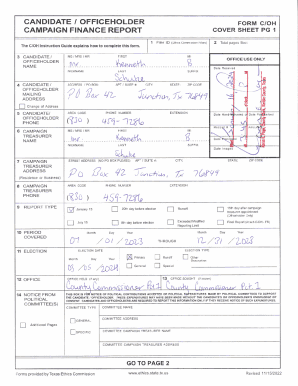 CANDIDATE / OFFICEHOLDER
CAMPAIGN FINANCE REPORT
FORM C/OH
COVER SHEET PG 1
The C/OH Instruction Guide explains how to complete this form.
1 Filer ID (Ethics Commission Filers)
2 Total pages filed:
3 CANDIDATE / OFFICEHOLDER NAME
MS / MRS / MR FIRST MI
Mr Kenneth B
NICKNAME LAST SUFFIX
Schulze
OFFICE USE ONLY
Date Received
4 CANDIDATE / OFFICEHOLDER MAILING ADDRESS
Change of Address
ADDRESS / PO BOX; APT / SUITE #; CITY; STATE; ZIP CODE
PO Box 42 Junction, Tx 76849
5 CANDIDATE / OFFICEHOLDER PHONE
AREA CODE PHONE NUMBER EXTENSION
(830) 459-7286
6 CAMPAIGN TREASURER NAME
MS / MRS / MR FIRST MI
Mr Kenneth B
NICKNAME LAST SUFFIX
Schulze
7 CAMPAIGN TREASURER ADDRESS
(Residence or Business)
STREET ADDRESS (NO PO BOX PLEASE); APT / SUITE #; CITY; STATE; ZIP CODE
PO Box 42 Junction, Tx 76849
8 CAMPAIGN TREASURER PHONE
AREA CODE PHONE NUMBER EXTENSION
(830) 459-7286
9 REPORT TYPE
January 15
30th day before election
Runoff
15th day after campaign treasurer appointment (Officeholder Only)
July 15
8th day before election
Exceeded Modified Reporting Limit
Final Report (Attach C/OH - FR)
10 PERIOD COVERED
Month Day Year
07 / 01 / 2023 THROUGH 12 / 31 / 2023
11 ELECTION
ELECTION DATE
Month Day Year
03 / 05 / 2024
ELECTION TYPE
Primary
Runoff
Other Description
General
Special
12 OFFICE
OFFICE HELD (if any)
County Commissioner Pct 1
13 OFFICE SOUGHT (if known)
County Commissioner Pct 1
14 NOTICE FROM POLITICAL COMMITTEE(S)
THIS BOX IS FOR NOTICE OF POLITICAL CONTRIBUTIONS ACCEPTED OR POLITICAL EXPENDITURES MADE BY POLITICAL COMMITTEES TO SUPPORT THE CANDIDATE / OFFICEHOLDER. THESE EXPENDITURES MAY HAVE BEEN MADE WITHOUT THE CANDIDATE'S OR OFFICEHOLDER'S KNOWLEDGE OR CONSENT. CANDIDATES AND OFFICEHOLDERS ARE REQUIRED TO REPORT THIS INFORMATION ONLY IF THEY RECEIVE NOTICE OF SUCH EXPENDITURES.
Additional Pages
COMMITTEE TYPE
GENERAL
SPECIFIC
COMMITTEE NAME
COMMITTEE ADDRESS
COMMITTEE CAMPAIGN TREASURER NAME
COMMITTEE CAMPAIGN TREASURER ADDRESS
GO TO PAGE 2
Forms provided by Texas Ethics Commission
www.ethics.state.tx.us
Revised 11/15/2022